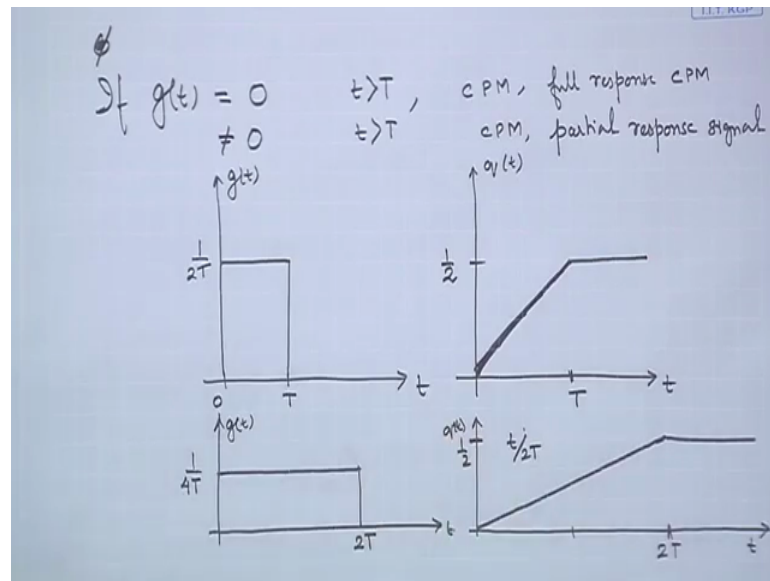 I.I.T. KGP
ϕ
If g(t) = 0 t>T, CPM, full response CPM
≠ 0 t>T CPM, partial response signal
g(t)
1/2T
0
T
t
q(t)
1/2
T
t
g(t)
1/4T
2T
t
q(t)
1/2
t/2T
2T
t